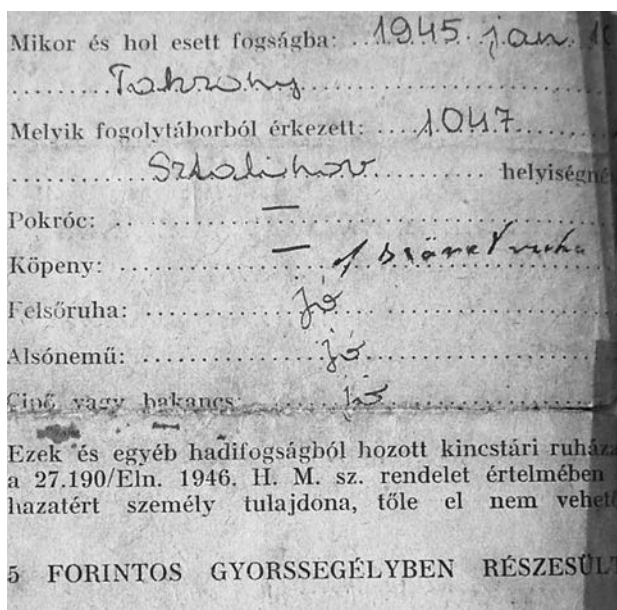 Mikor és hol esett fogságba: 1945. jan. 10
Taksony
Melyik fogolytáborból érkezett: 1047
helyiségné
Pokróc: —
Köpeny: —
Felsőruha: jó
Alsónemű: jó
Cipő vagy bakancs: jó
Ezek és egyéb hadifogságból hozott kincstári ruháza
a 27.190/Eln. 1946. H. M. sz. rendelet értelmében
hazatért személy tulajdona, tőle el nem vehető
5 FORINTOS GYORSSEGÉLYBEN RÉSZESÜLT